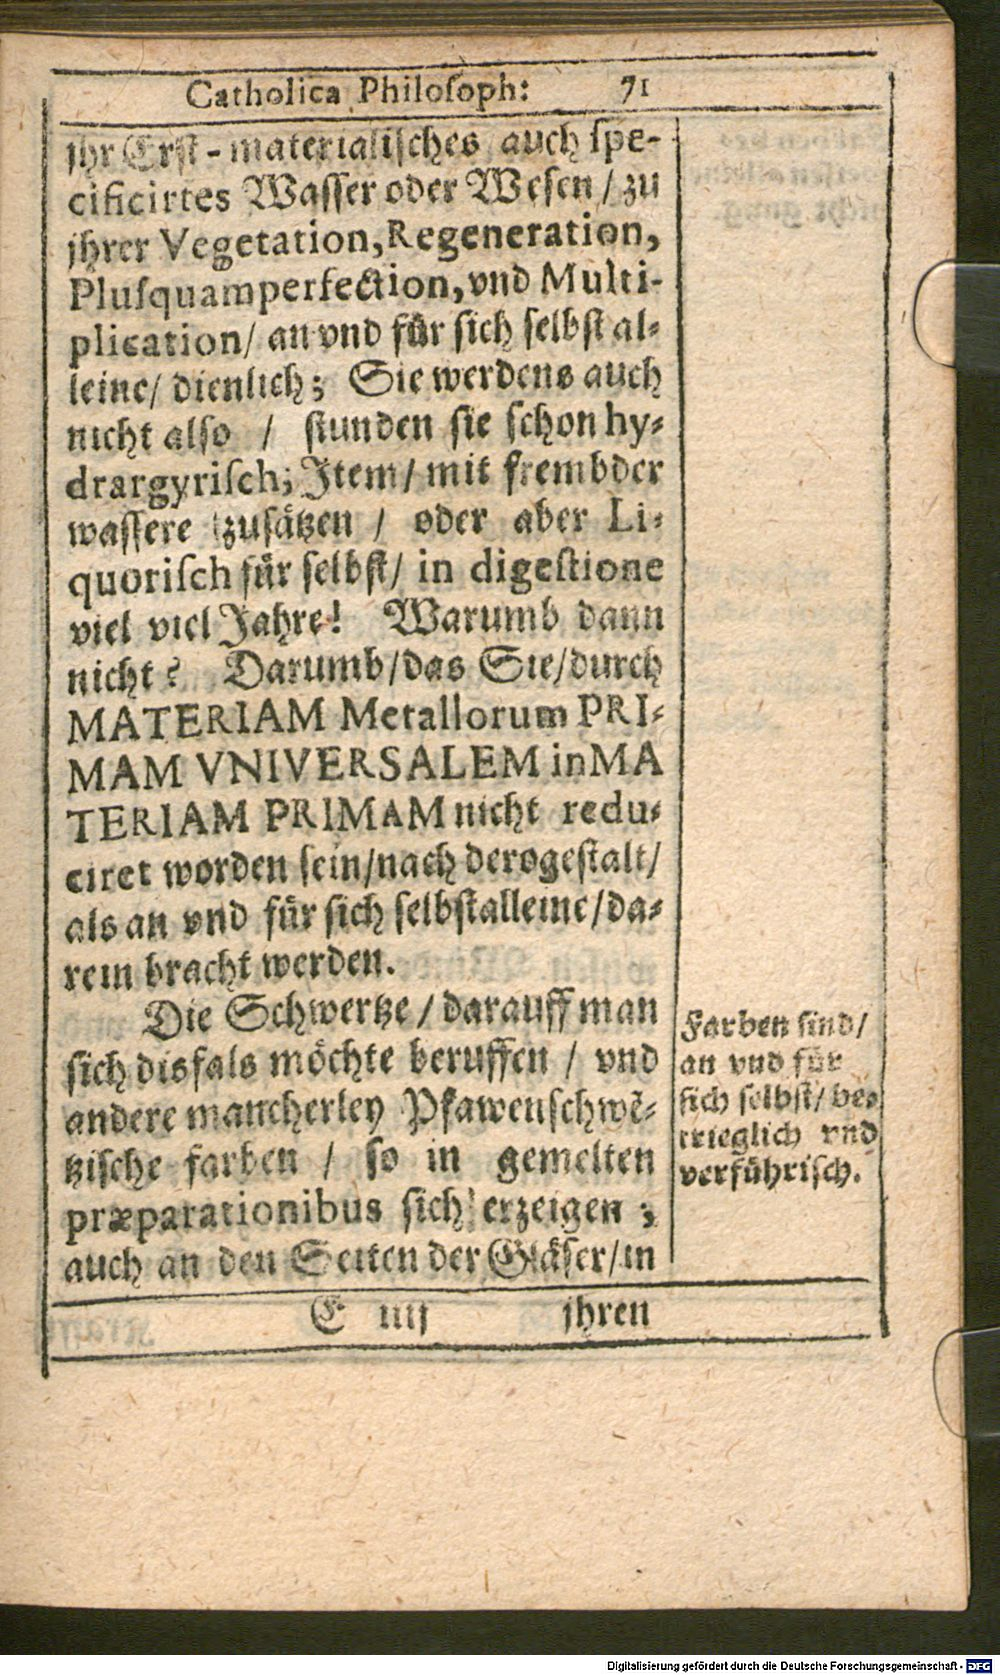 Catholica Philoſoph: 71
jhr Erſt-materialiſches auch ſpe-
cificirtes Waſſer oder Weſen / zu
jhrer Vegetation, Regeneration,
Pluſquamperfection, vnd Multi-
plication / an vnd fuͤr ſich ſelbſt al-
leine / dienlich; Sie werdens auch
nicht alſo / ſtunden ſie ſchon hy-
drargyriſch; Item / mit frembder
waſſere zuſaͤtzen / oder aber Li-
quoriſch fuͤr ſelbſt / in digeſtione
viel viel Jahre! Warumb dann
nicht? Darumb / das Sie / durch
MATERIAM Metallorum PRI-
MAM VNIVERSALEM in MA
TERIAM PRIMAM nicht redu-
ciret worden ſein / nach derogeſtalt /
als an vnd fuͤr ſich ſelbſt alleine / da-
rein bracht werden.
Die Schwertze / darauff man
ſich disfals moͤchte beruffen / vnd
andere mancherley Pfawenſchwẽ-
tziſche farben / ſo in gemelten
præparationibus ſich erzeigen;
auch an den Seiten der Glaͤſer / in
Farben ſind /
an vnd fuͤr
ſich ſelbſt / be-
trieglich vnd
verfuͤhriſch.
E iiij jhren
Digitalisierung gefördert durch die Deutsche Forschungsgemeinschaft - DFG